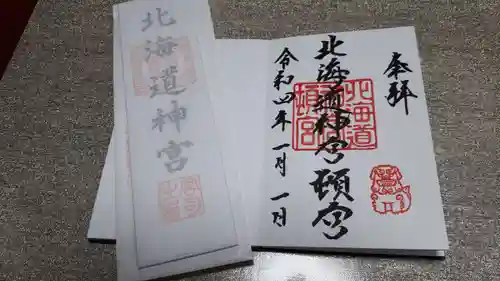 奉拝
北海道神宮頓宮
北海道
頓宮
令和四年一月一日
北海道神宮